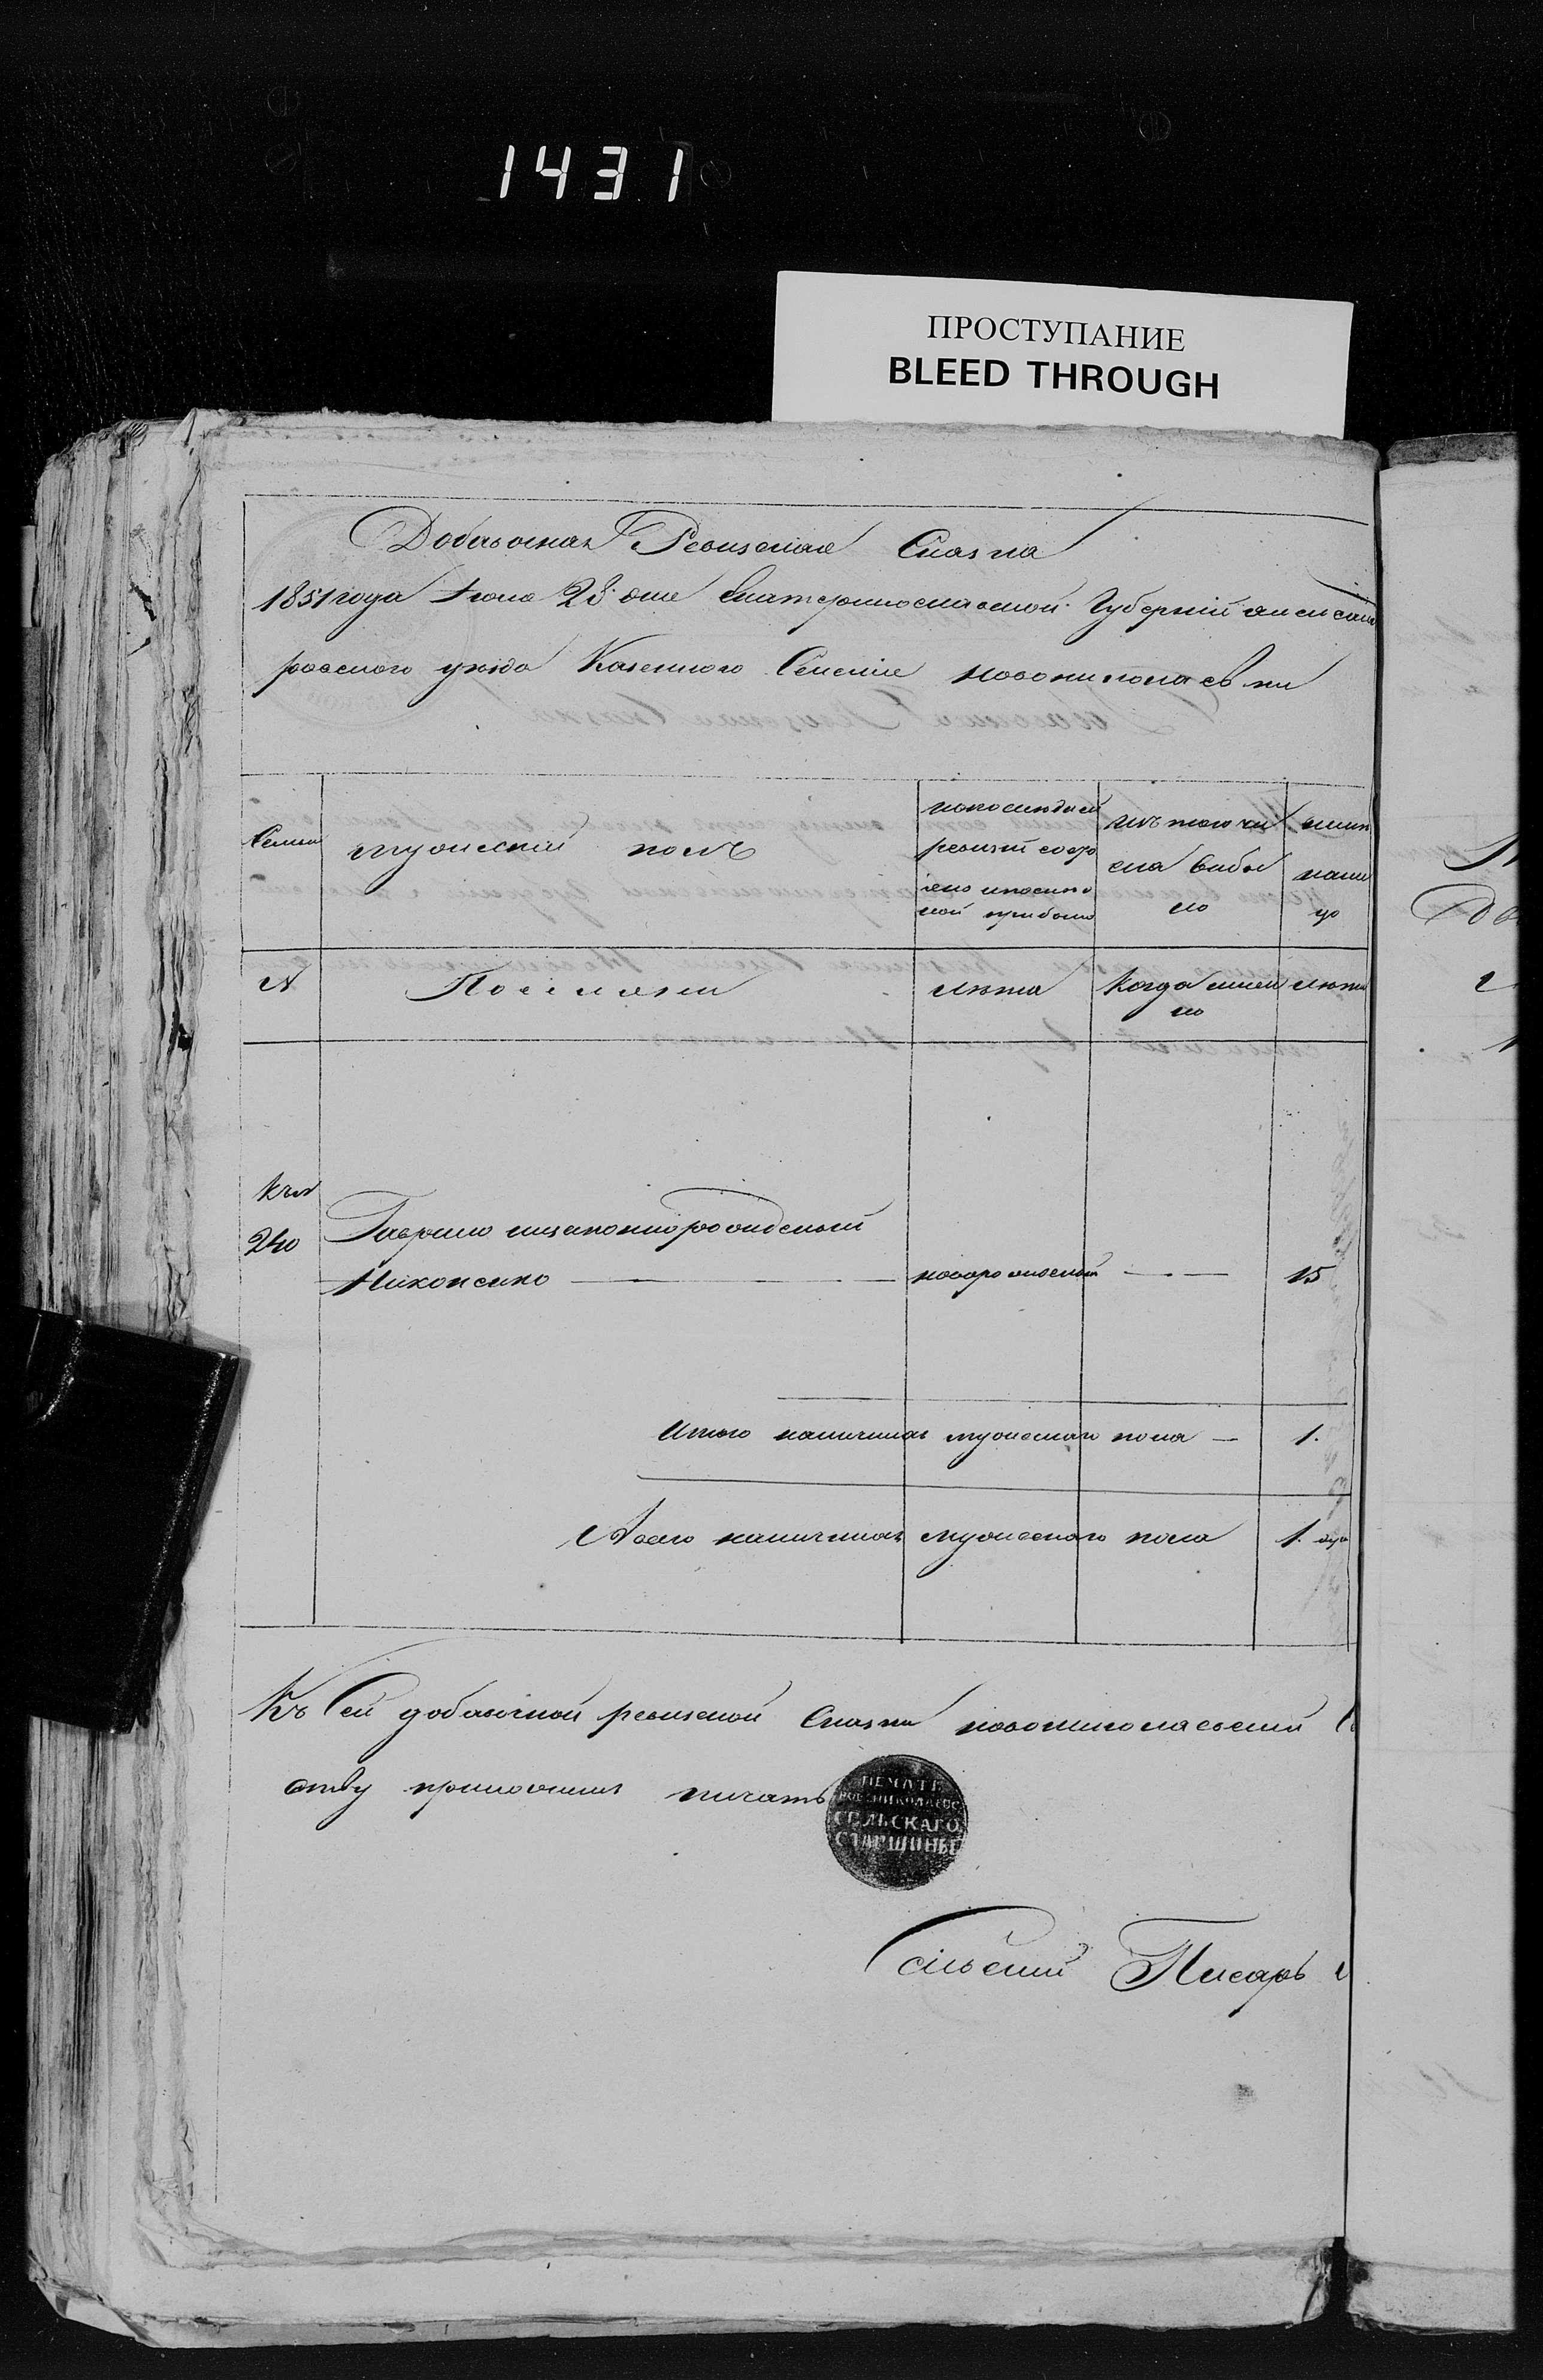 1431
ПРОСТУПАНИЕ
BLEED THROUGH
Добавочная Ревизская Сказка
1851 года Июля 28 дня Екатеринославской Губерний Алексан
ровского уезда Казенного Селения Новониколаевки
Семьи
мужеский полъ
попоследней
ревизий
прибыло
изъ того чи
сла выбы
ло
нын
нали
цо
№
Поселяни
лета
Когда имен
но
лета
къ №
240
Гаврило незаконнорожденный
новорожденный
15
Итого наличных мужескаго пола — 1.
А всего наличных мужеского пола 1. душ
Къ сей добавочной ревизской Сказки новониколаевский
приложил печать
ПЕЧАТЬ
НОВОНИКОЛАЕВС
СЕЛЬСКАГО
СТАРШИНЫ
Сельский Писарь